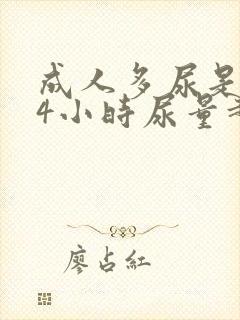 成人多尿是
4小時尿量
廖占紅